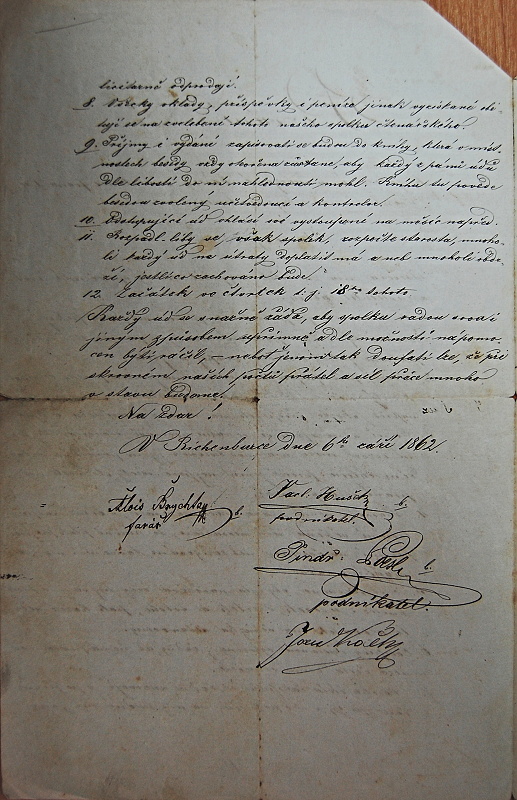 licitarně odprodají.
8. Všecky vklady, příspěvky i peníze jinak vyzískané obrátí se na zvelebení tohoto našeho spolku čtenářského.
9. Příjmy i vydání zapisovati se budou do knihy, která v místnostech besedy vždy otevřena zůstane, aby každý z pánů údů
dle libosti do ní nahlednouti mohl. Knihu tu povede
besedou zvolený účetvedoucí a kontrolor.
10. Vystupující úd ohlásí své vystoupení na měsíc napřed.
11. Rozpadl-liby se však spolek, rozpočte starosta, mnoho-
li každý úd na ztráty doplatiti má a neb mnoholi obdr-
ží, jestli co zachováno bude.
12. Začátek ve čtvrtek t. j. 18ho tohoto
Každý úd se snažně žádá, aby spolku radou svou i
jiným způsobem upřímně a dle možnosti nápomo-
cen býti ráčil, – neboť jen tak doufati lze, že při
skrovném našich počtu přátel a sil práce mnoho
v stavu budeme.
Na zdar!
V Richenburce dne 6ho září 1862.
Alois Brychta
farář
Vacl.
podnikatel.
Jindř.
podnikatel.
Josef